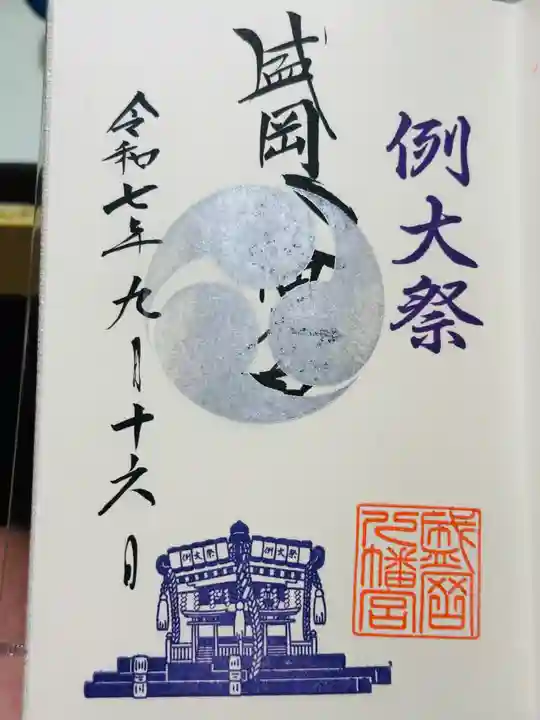 例大祭
盛岡八
令和七年九月十六日
盛岡八幡宮
例大
祭
例
大祭